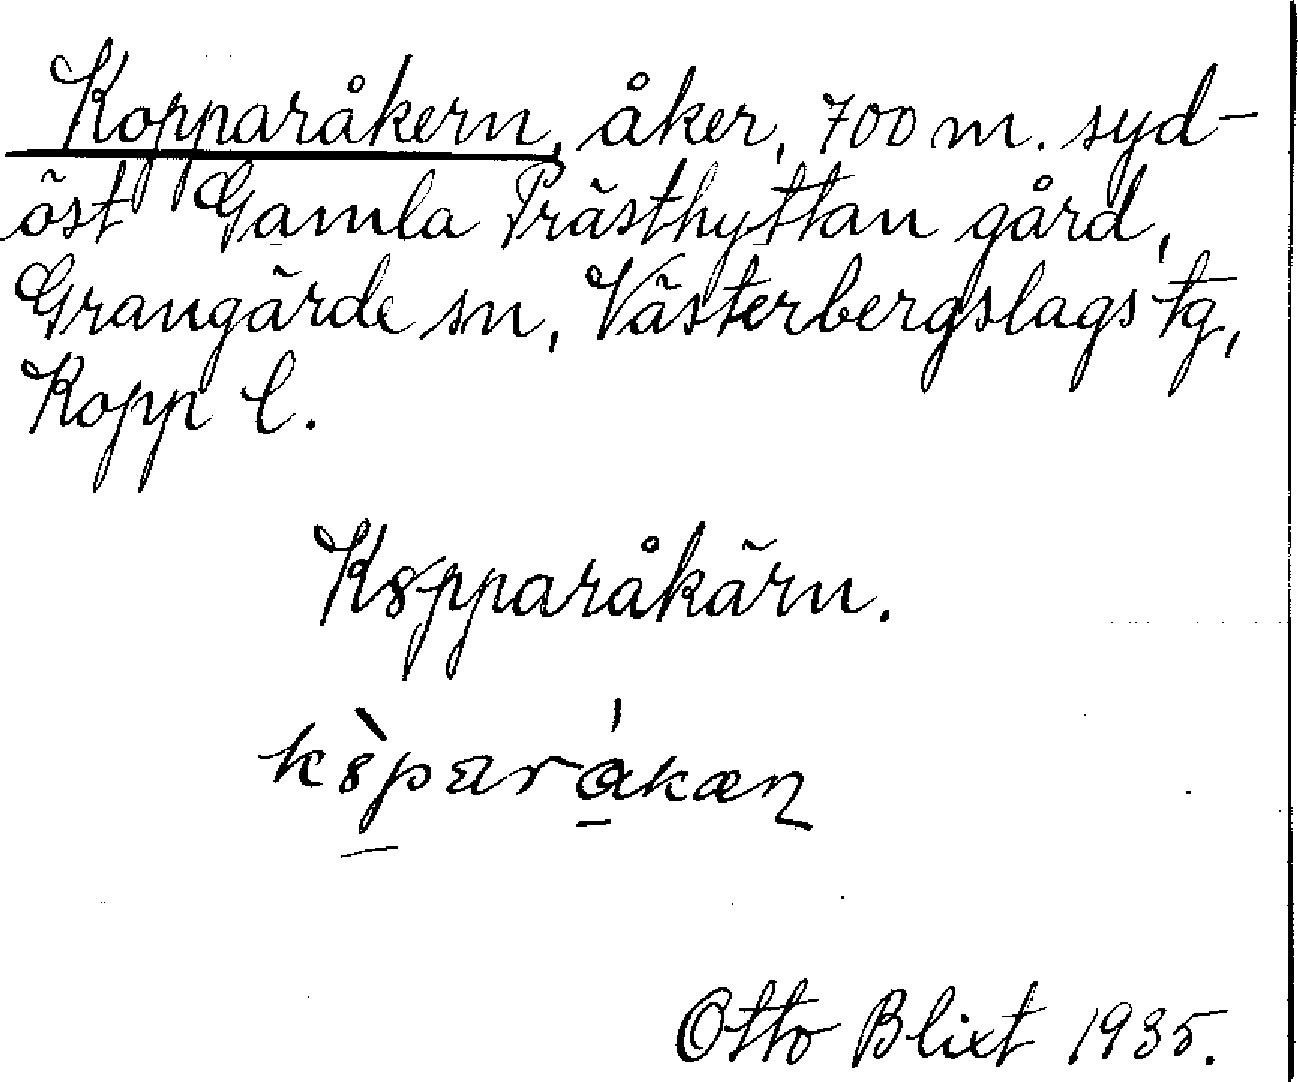 Kopparåkern, åker, 700 m. syd-
öst Gamla Prästhyttan gård,
Grangärde sn, Västerbergslags tg,
Kopp l.
K8pparåkärn.
k8̀parákæn
Otto Blixt 1935.